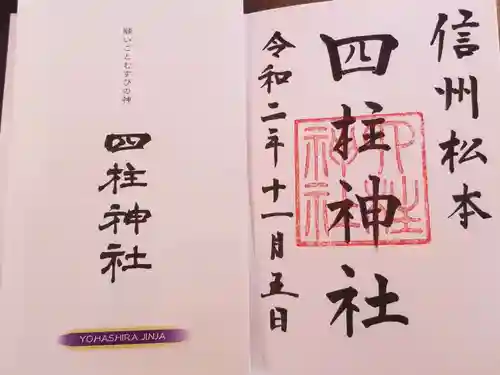 信州松本
四柱神社
令和二年十一月五日
四柱神社
願いごとむすびの神
四柱神社
YOHASHIRA JINJA